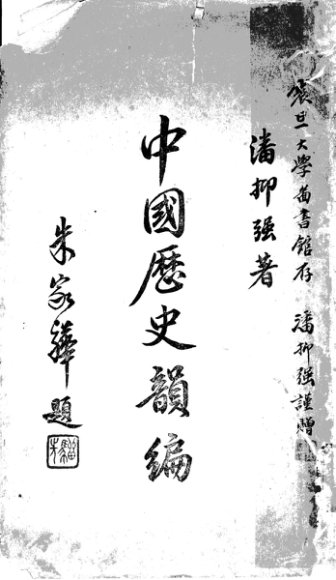 震旦大學圖書館存 潘抑强謹贈
潘抑强著
中國歷史韻編
朱家驊題